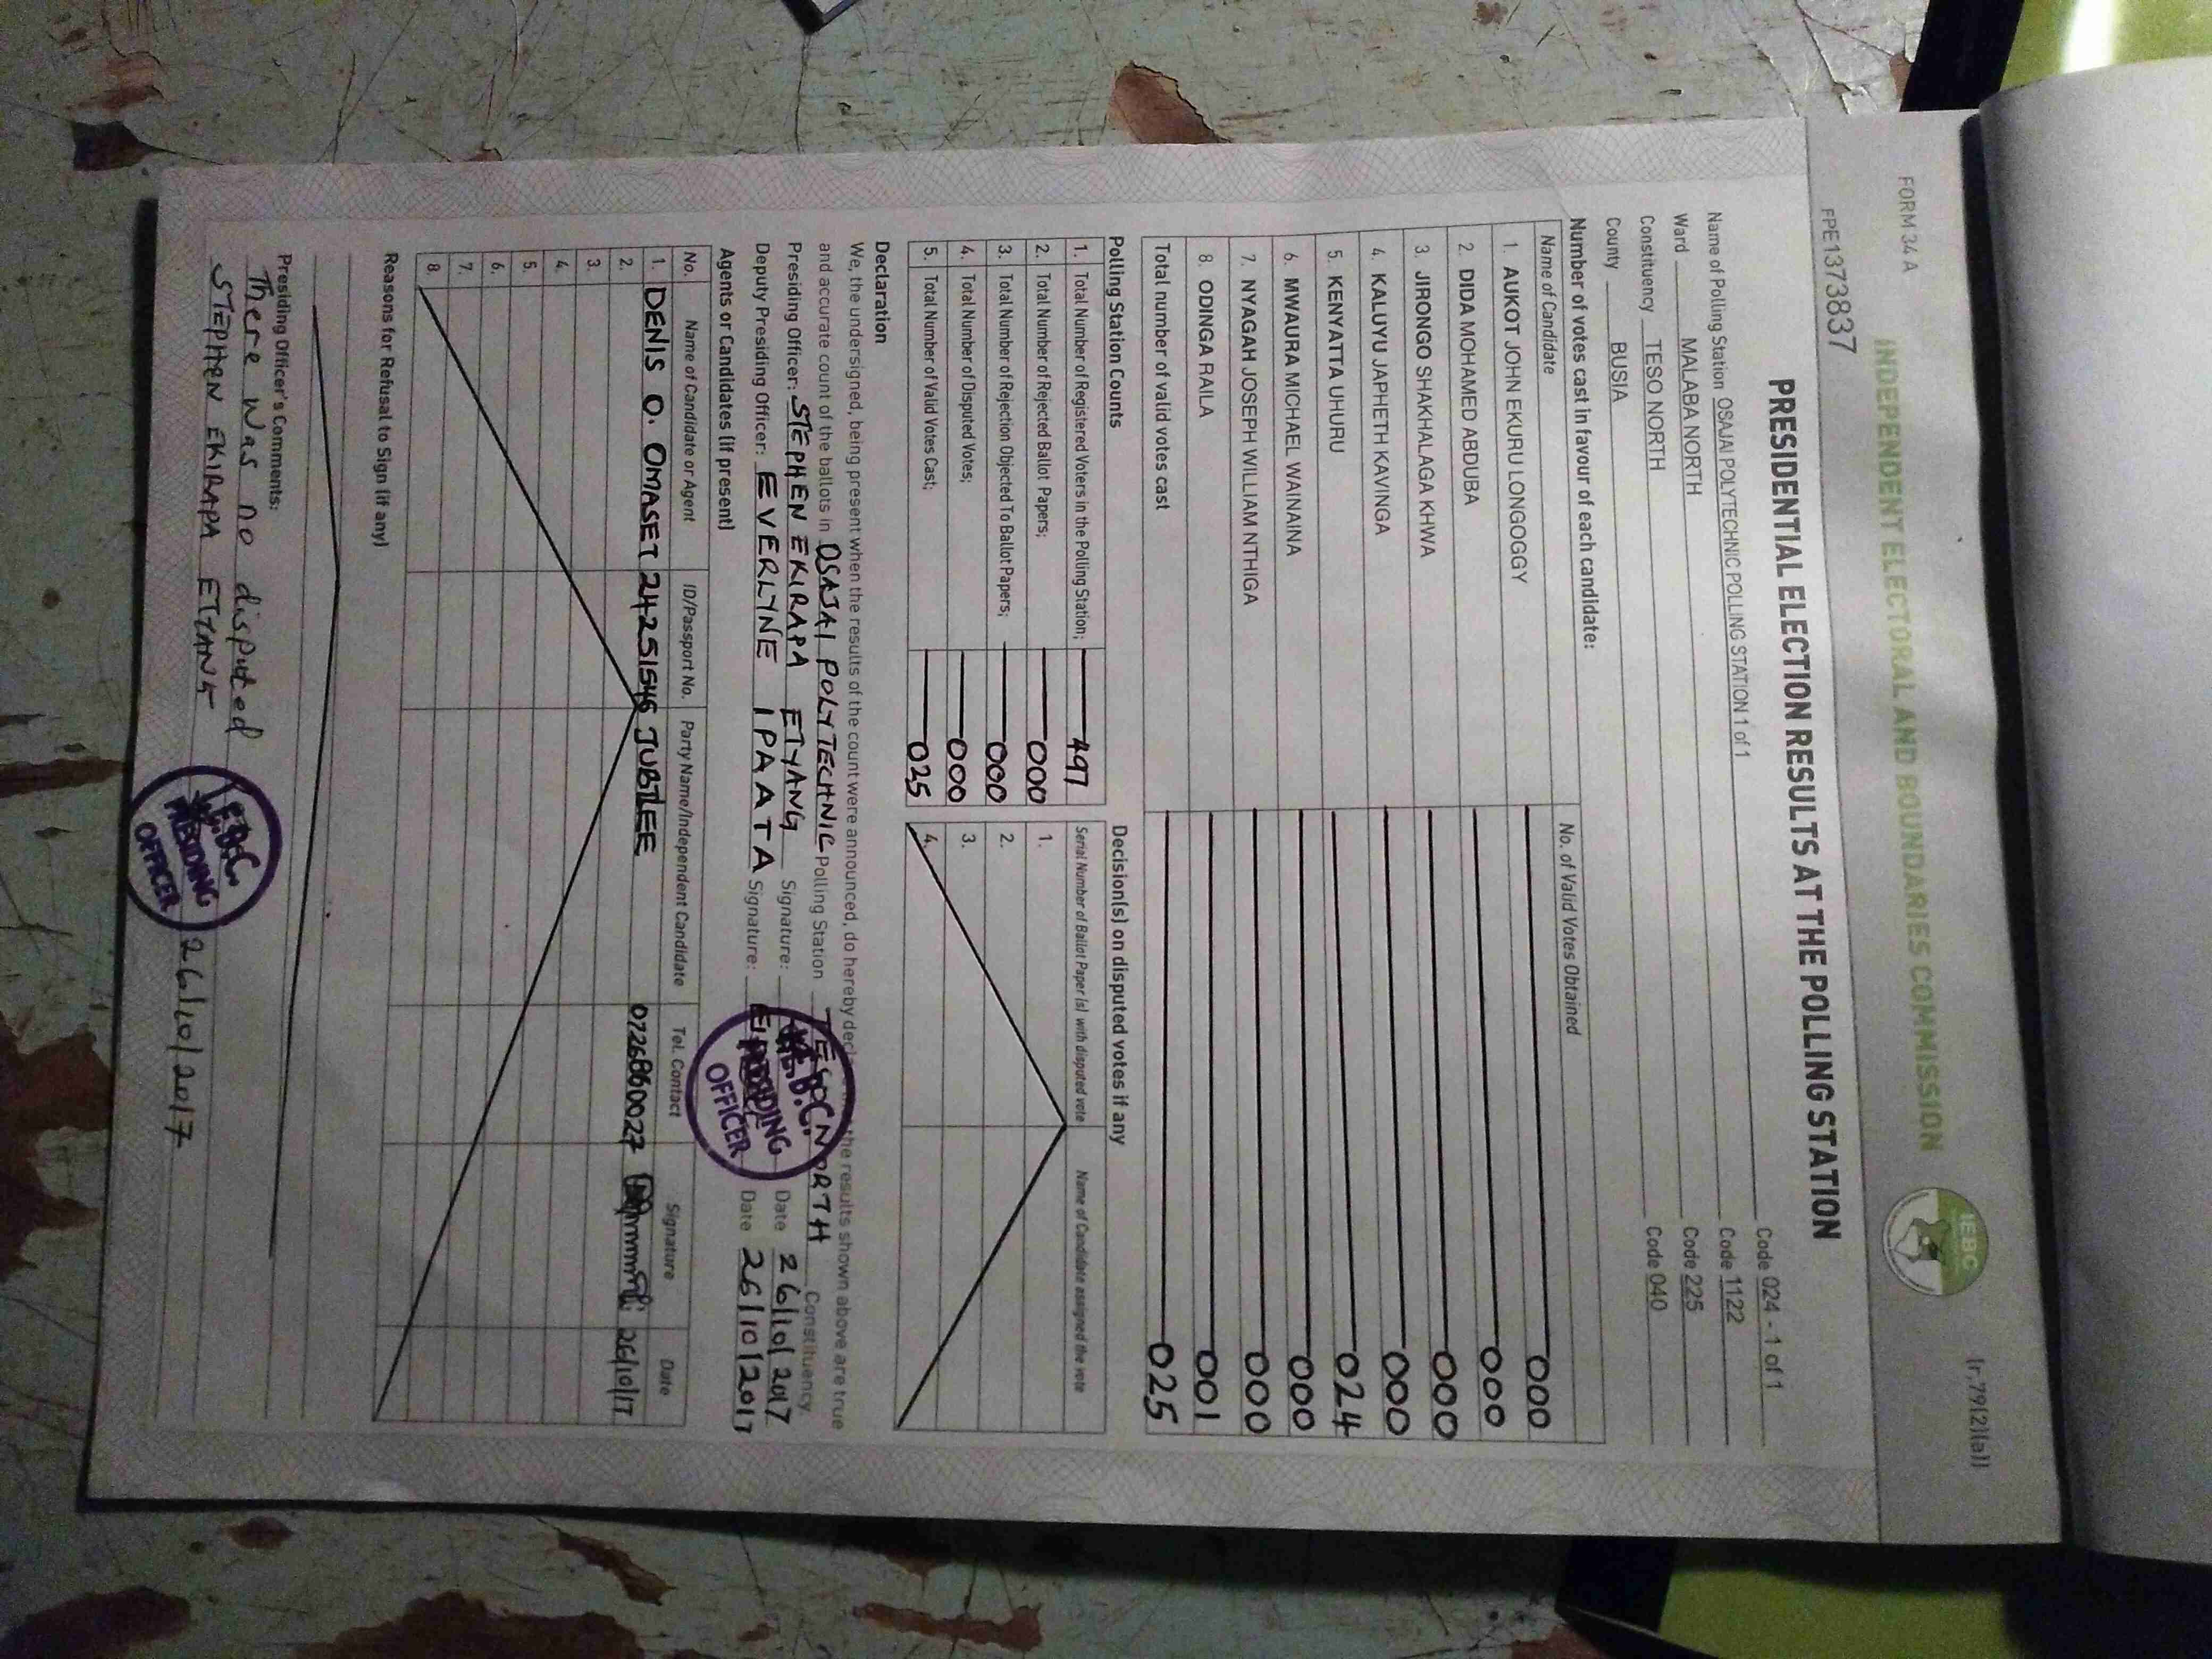 FORM 34 A
(r.79(2)(a))
INDEPENDENT ELECTORAL AND BOUNDARIES COMMISSION
IEBC
FPE1373837
PRESIDENTIAL ELECTION RESULTS AT THE POLLING STATION
Name of Polling Station OSAJAI POLYTECHNIC POLLING STATION 1 of 1 Code 024 - 1 of 1
Ward MALABA NORTH Code 1122
Constituency TESO NORTH Code 225
County BUSIA Code 040
Number of votes cast in favour of each candidate:
Name of Candidate No. of Valid Votes Obtained
1. AUKOT JOHN EKURU LONGOGGY 000
2. DIDA MOHAMED ABDUBA 000
3. JIRONGO SHAKHALAGA KHWA 000
4. KALUYU JAPHETH KAVINGA 000
5. KENYATTA UHURU 024
6. MWAURA MICHAEL WAINAINA 000
7. NYAGAH JOSEPH WILLIAM NTHIGA 000
8. ODINGA RAILA 001
Total number of valid votes cast 025
Polling Station Counts
1. Total Number of Registered Voters in the Polling Station; 497
2. Total Number of Rejected Ballot Papers; 000
3. Total Number of Rejection Objected To Ballot Papers; 000
4. Total Number of Disputed Votes; 000
5. Total Number of Valid Votes Cast; 025
Decision(s) on disputed votes if any
Serial Number of Ballot Paper (s) with disputed vote Name of Candidate assigned the vote
1.
2.
3.
4.
Declaration
We, the undersigned, being present when the results of the count were announced, do hereby decl the results shown above are true
and accurate count of the ballots in OSAJAI POLYTECHNIC Polling Station TESO NORTH Constituency.
Presiding Officer: STEPHEN EKIRAPA ETYANG Signature: Date 26/10/2017
Deputy Presiding Officer: EVERLYNE IPAATA Signature: Date 26/10/2017
I.E.B.C.
PRESIDING
OFFICER
Agents or Candidates (if present)
No. Name of Candidate or Agent ID/Passport No. Party Name/Independent Candidate Tel. Contact Signature Date
1. DENIS O. OMASET 24251546 JUBILEE 0726860027 26/10/17
2.
3.
4.
5.
6.
7.
8.
Reasons for Refusal to Sign (if any)
Presiding Officer's Comments:
There was no disputed
STEPHEN EKIRAPA ETYANG 26/10/2017
I.E.B.C.
PRESIDING
OFFICER